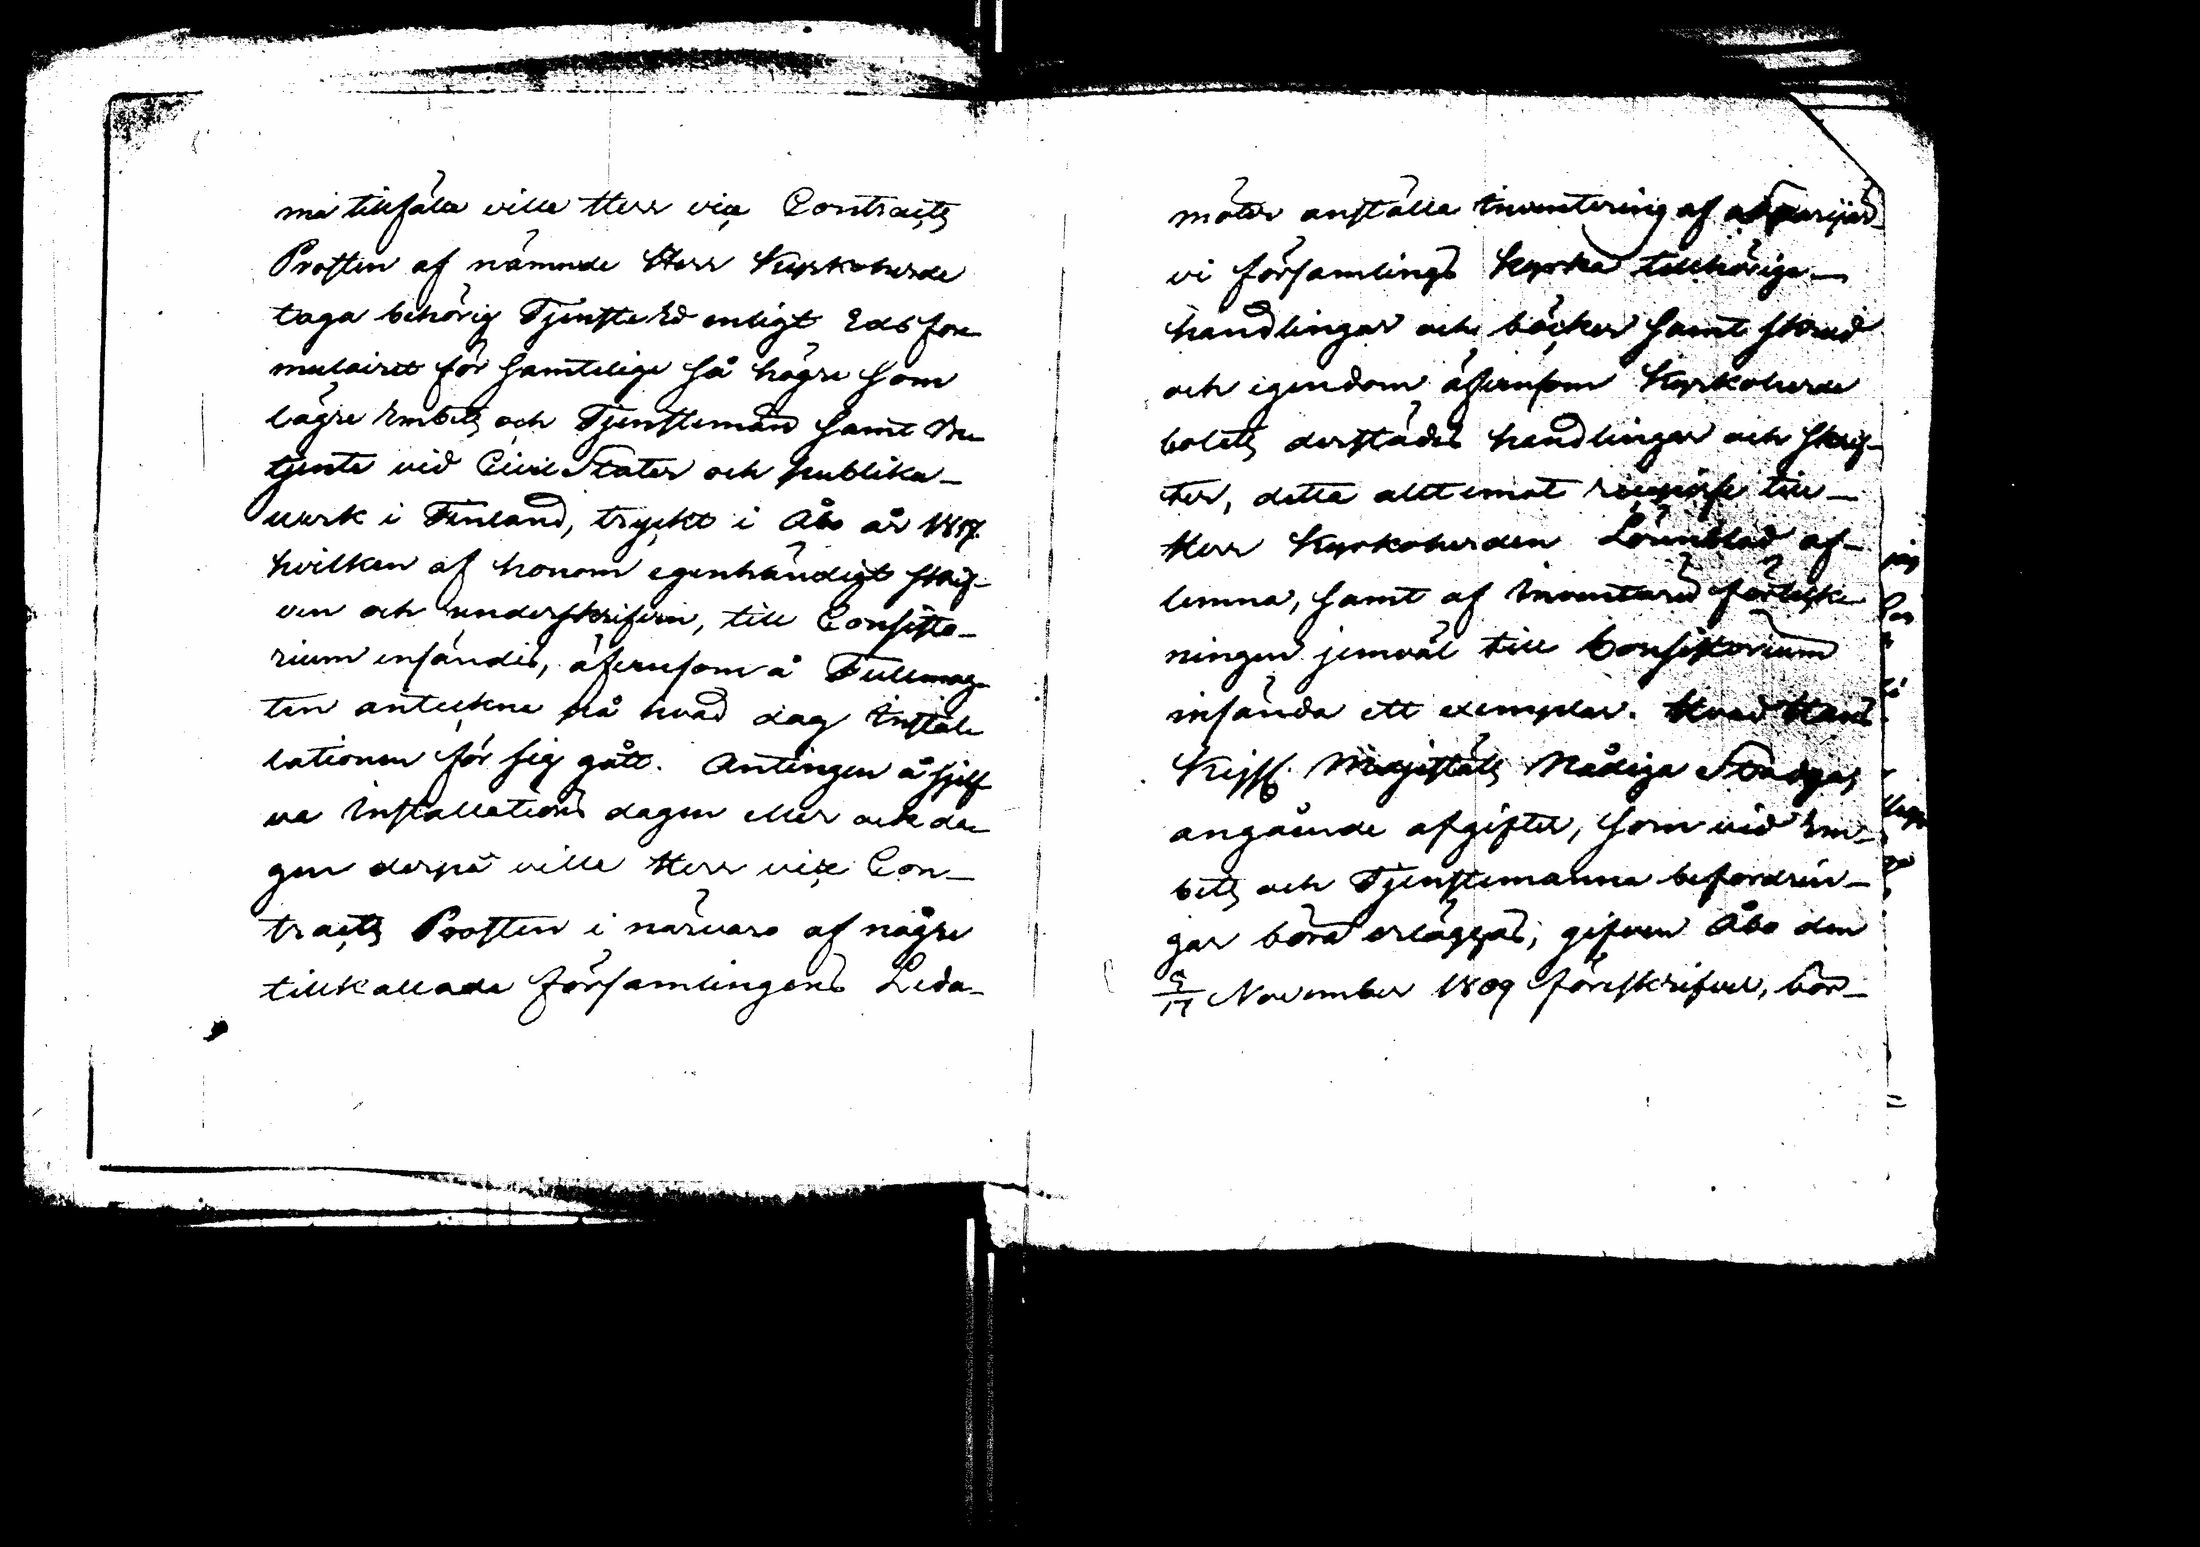 ma tillfälle ville Herr vice Contracts
Prosten af nämnde Herr Kyrkoherde
taga behörig Tjenste Ed enligt Eds for-
mulairet för samtelige så högre som
lägre Embets och Tjenstemän samt Be-
tjente vid Civil Stater och publika
verk i Finland, tryckt i Åbo år 1817.
hvilken af honom egenhändigt skrif-
ven och underskrifven, till Consisto-
rium insändes, äfvensom å Fullmag-
ten anteckna på hvad dag Instal-
lationen för sig gått. Antingen å sjelf
va Installations dagen eller ock da-
gen derpå ville Herr vice Con-
tracts Prosten i närvaro af någre
tillkallade församlingens Leda-
möter anställa Inventering af
vi församlings Kyrka tillhörige
handlingar och böcker samt skrud
och egendom äfvensom Kyrkoherde
bolets derstädes handlingar och skrif-
ter, detta allt emot recepisse till
Herr Kyrkoherden Lönnblad af-
lemna, samt af Inventarii förteck-
ningen jemväl till Consistorium
insända ett exemplar. Hvad Hans
Kejs. Majestäts Nådiga Stadga,
angående afgifter, som vid Em-
bets och Tjenstemanna befordrin-
gar böra erläggas, gifven Åbo den
5/17 November 1809 föreskrifver, bör-